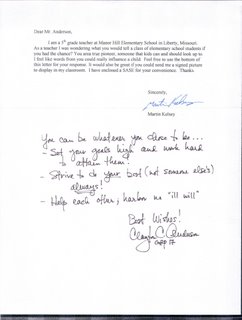 Dear Mr. Anderson,
I am a 5th grade teacher at Manor Hill Elementary School in Liberty, Missouri.
As a teacher I was wondering what you would tell a class of elementary school students if
you had the chance? You area true pioneer, someone that kids can and should look up to
as I feel like words from you could really influence a child. Feel free to use the bottom of
this letter for your response. It would also be great if you could send me a signed picture
to display in my classroom. I have enclosed a SASE for your convenience. Thanks
Sincerely,
Martin Kelsey
Martin Kelsey
You can be whatever you choose to be...
- Set your goals high and work hard
to attain them!
- Strive to do your best (not someone else's)
always!
- Help each other; harbor no "ill will"
Best Wishes!
Clayton C. Anderson